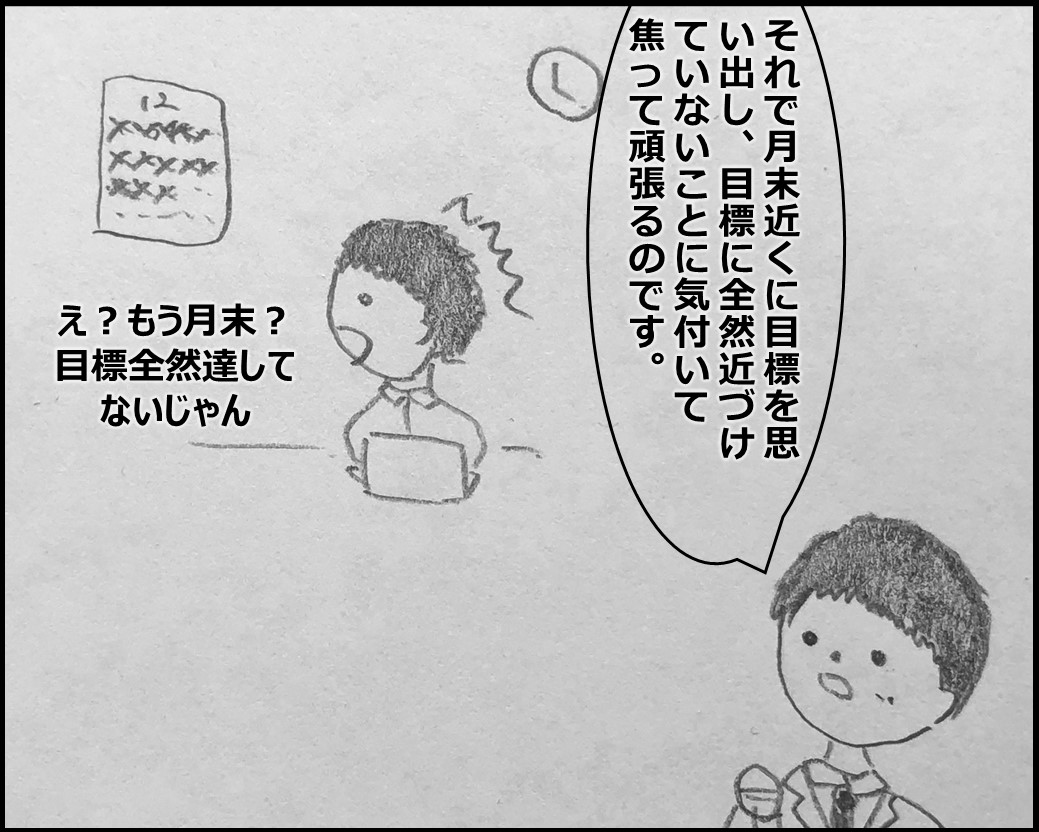 それで月末近くに目標を思
い出し、目標に全然近づけ
ていないことに気付いて
焦って頑張るのです。
12
え？もう月末？
目標全然達して
ないじゃん